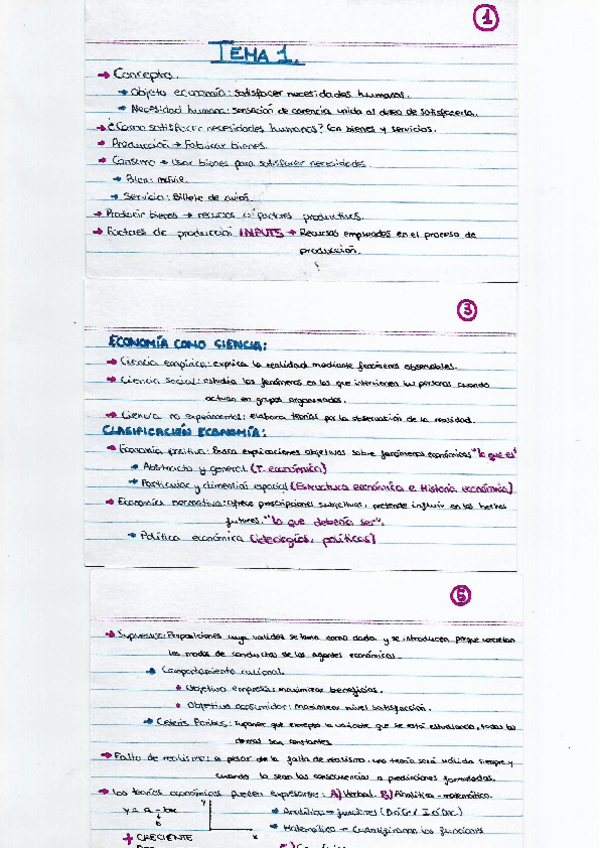 1
TEMA 1.
→ Concepto.
→ Objeto economía: satisfacer necesidades humanas.
→ Necesidad humana: sensación de carencia unida al deseo de satisfacerla.
→ ¿Cómo satisfacer necesidades humanas? Con bienes y servicios.
→ Producción → Fabricar bienes.
→ Consumo → Usar bienes para satisfacer necesidades.
→ Bien:
→ Servicio: Billete de
→ Producir bienes → recursos o factores productivos.
→ Factores de producción INPUTS → Recursos empleados en el proceso de
producción.
3
ECONOMÍA COMO CIENCIA:
→ Ciencia empírica: explica la realidad mediante fenómenos observables.
→ Ciencia social: estudia los fenómenos en los que intervienen las personas cuando
actúan en grupos organizados.
→ Ciencia no experimental: elabora teorías por la observación de la realidad.
CLASIFICACIÓN ECONOMÍA:
→ Economía positiva: Busca explicaciones objetivas sobre fenómenos económicos "lo que es"
→ Abstracto y general (T. económica)
→ Particular y dimensión espacial (Estructura económica e Historia económica)
→ Economía normativa: ofrece prescripciones subjetivas, pretende influir en los hechos
futuros. "lo que debería ser".
→ Política económica (ideologías, políticas)
5
→ Supuestos: Proposiciones cuya validez se toma como dada y se introducen porque
los modos de conducta de los agentes económicos.
→ Comportamiento racional.
• Objetivo empresas: maximizar beneficios.
• Objetivo consumidor: maximizar nivel satisfacción.
→ Ceteris Paribus: Suponer que excepto la variable que se está estudiando, todas las
demás son constantes
→ Falta de realismo: a pesar de la falta de realismo, una teoría será válida siempre y
cuando lo sean las consecuencias o predicciones formuladas.
→ Las teorías económicas pueden expresarse: A) Verbal. B) Analítica-matemática.
y = a - bx
y
→ Analítica → funciones
x
→ Matemática → las funciones
+ CRECIENTE